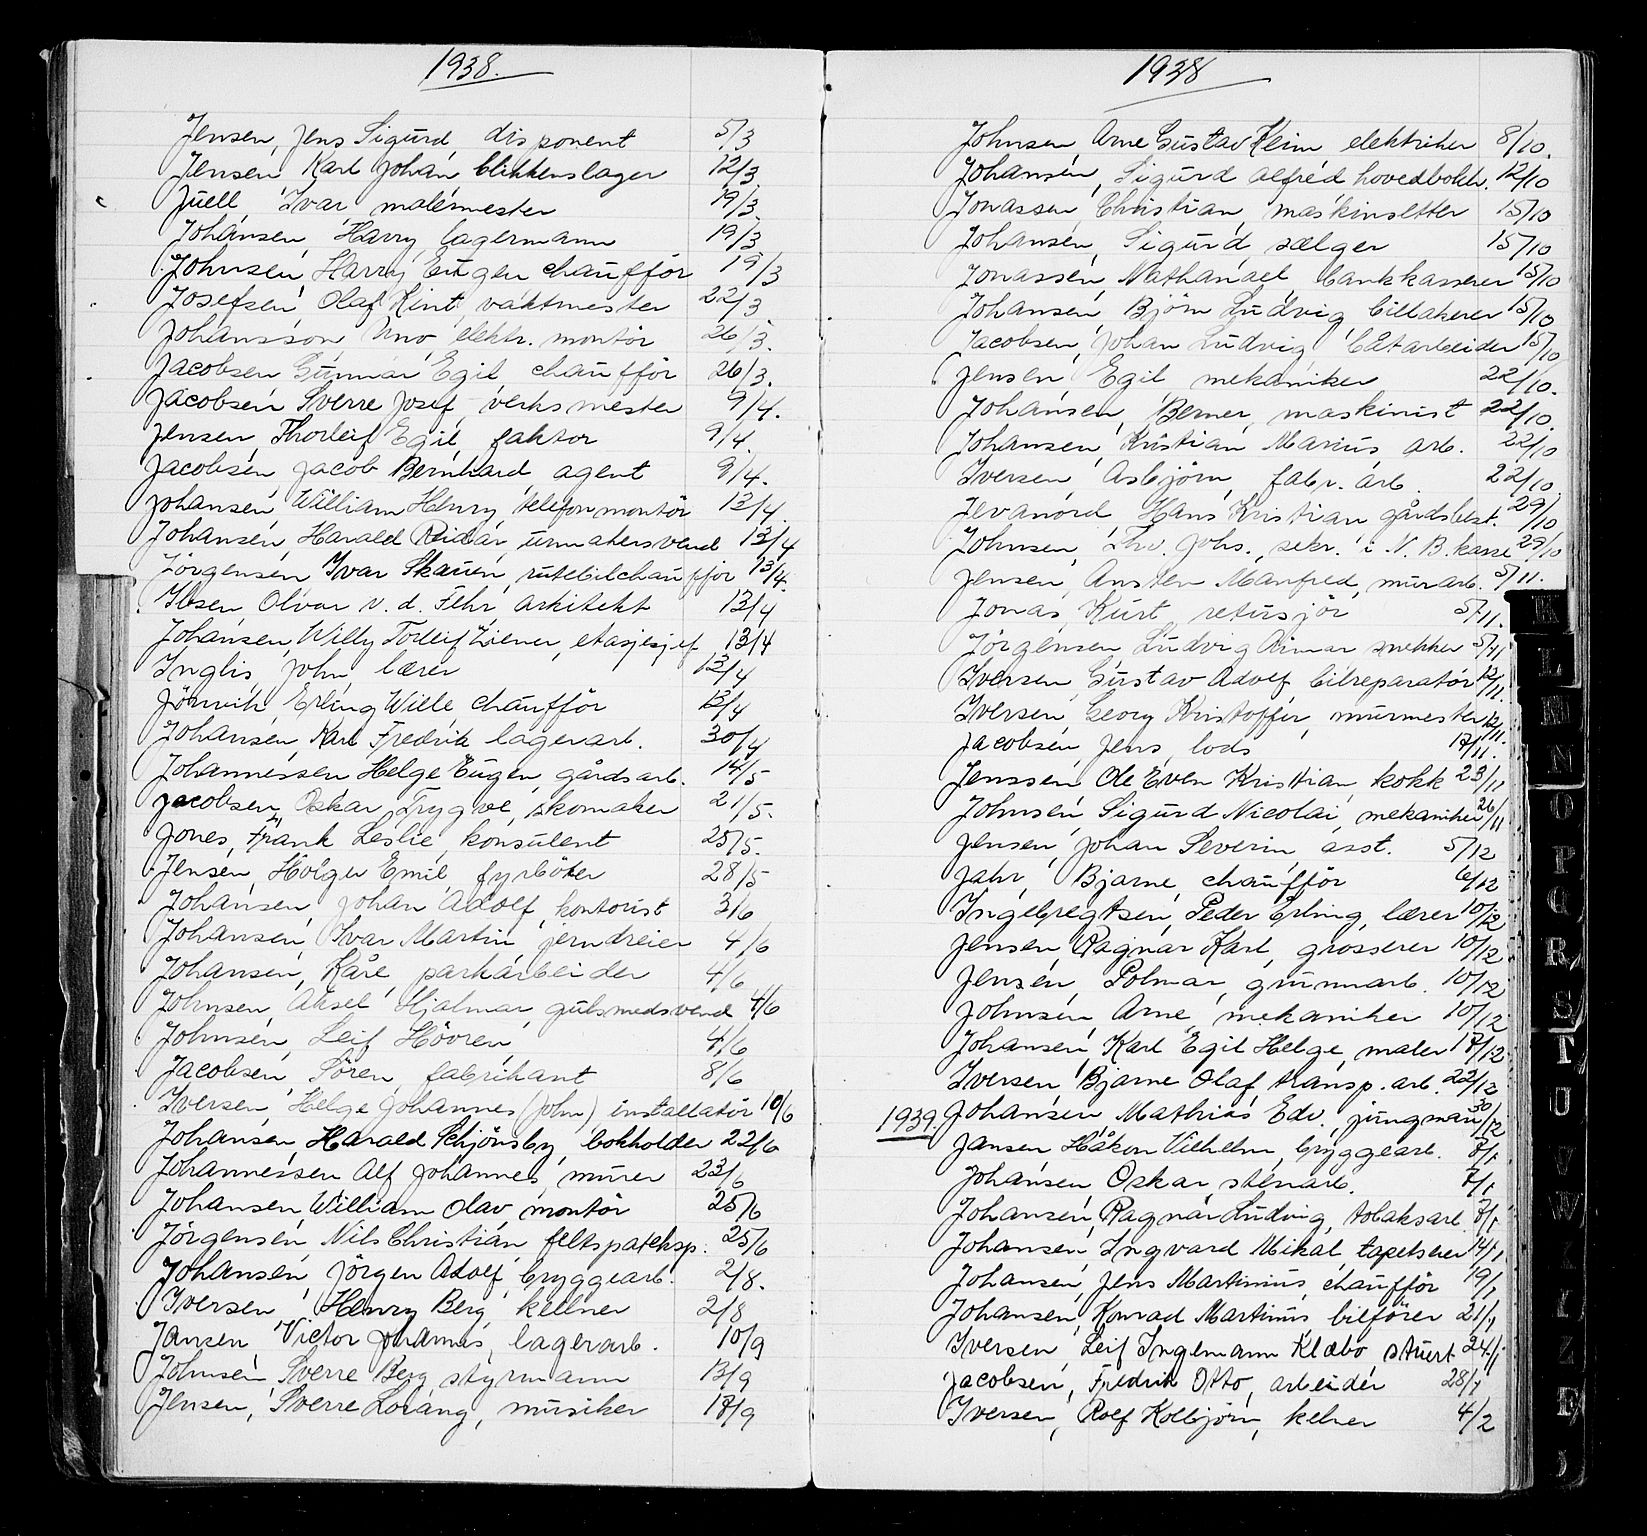 1938.
Jensen, Jens Sigurd, disponent 5/3
Jensen, Karl Johan blikkenslager 12/3
Juell Ivar malermester 19/3
Johansen, Harry, lagermann 19/3
Johnsen, Harry Eugen chaufför 19/3
Josefsen Olaf Kint, vaktmester 22/3
Johansson Uno, elektr. montör 26/3.
Jacobsen Gunnar Egil chaufför 26/3.
Jacobsen Sverre Josef, verksmester 9/4.
Jensen, Thorleif Egil, faktor 9/4.
Jacobsen Jacob Bernhard, agent 9/4.
Johansen, William Henry, telefonmontör 13/4.
Johansen, Harald Reidar, urmakersvend 13/4
Jörgensen, Ivar Skauen, rutebilchauffør 13/4.
Ibsen, Olvar v. d. Fehr, arkitekt 13/4
Johansen, Willy Torleif Ziener, etasjesjef 13/4
Inglis, John lærer 13/4
Jörnvik Erling Wille chauffför 13/4
Johansen, Karl Fredrik lagerarb. 30/4
Johannessen Helge Eugen, gårdsarb. 14/5
Jacobsen, Oskar, Trygve, skomaker 21/5.
Jones, Frank Leslie, konsulent 25/5.
Jensen, Holger Emil fyrböter 28/5
Johansen, Johan Adolf, kontorist 3/6
Johansen, Ivar Martin, jerndreier 4/6
Johansen, Kåre, parkarbeider 4/6
Johnsen, Aksel Hjalmar, gulsmedsvend 4/6
Johnsen, Leif Hövren, 4/6
Jacobsen, Sören, fabrikant 8/6
Iversen, Helge Johannes (John) installatör 10/6
Johansen, Harald Schjönsby, bokholder 22/6
Johannessen Alf Johannes, murer 23/6
Johansen, William Olav, montör 25/6
Jörgensen, Nils Christian feltspateksp. 25/6
Johansen, Jörgen Adolf, bryggearb. 2/8.
Iversen, Henry Berg, kellner 2/8
Jansen, Victor Johannes, lagerarb. 10/9
Johnsen, Sverre Berg, styrmann 13/9
Jensen, Sverre Lorang, musiker 17/9
1938
Johnsen, Arne Gustav Kleim elektriker 8/10.
Johansen, Sigurd Alfred hovedbokh. 12/10
Jonassen, Christian, maskinsetter 15/10
Johansen, Sigurd, sælger 15/10
Jonassen, Nathanael, bankkasserer 15/10
Johansen, Björn Ludvig billakerer 15/10
Jacobsen, Johan Ludvig båtarbeider 15/10
Jensen, Egil mekaniker 22/10.
Johansen, Berner, maskinist 22/10.
Johansen, Kristian Marius, arb. 22/10
Iversen, Asbjörn, fabr. arb. 22/10
Jevanord, Hans Kristian gårdsbest. 29/10
Johnsen, Thv. Johs., sekr. i N. B. kasse 29/10
Jensen, Ansten Manfred, murarb. 5/11.
Jonas, Kurt, retusjör 5/11.
Jörgensen, Ludvig Rimar snekker 5/11
Iversen, Gustav Adolf bilreparatör 12/11.
Iversen, Georg Kristoffer, murmester 12/11.
Jacobsen, Jens, lods 17/11.
Jenssen, Ole Even Kristian, kokk 23/11
Johnsen, Sigurd Nicolai, mekaniker 26/11
Jensen, Johan Severin, asst. 5/12
Jahr, Bjarne, chauffför 6/12
Ingebregtsen, Peder Erling, lærer 10/12
Jensen, Ragnar Karl, grosserer 10/12
Jensen, Polmar, grunnarb. 10/12
Johnsen, Arne, mekaniker 10/12
Johansen, Karl Egil Helge, maler 17/12
Iversen, Bjarne Olaf transp. arb. 22/12
Johansen Mathias Edv., jungmann 30/12
1939. Jansen Håkon Vilhelm, bryggearb. 7/1
Johansen Oskar stenarb. 7/1
Johansen, Ragnar Ludvig, tobaksarb. 7/1
Johansen, Ingvard Mikal, tapetserer 14/1
Johansen, Jens Martinius, chauffför 19/1
Johansen, Konrad Martinus, bilförer 21/1
Iversen, Leif Ingemann Klæbo, stuert 24/1
Jacobsen, Fredrik Otto, arbeider 28/1
Iversen, Rolf Kolbjörn, kelner 4/2
K
L
M
N
O
P
Q
R
S
T
U
V
W